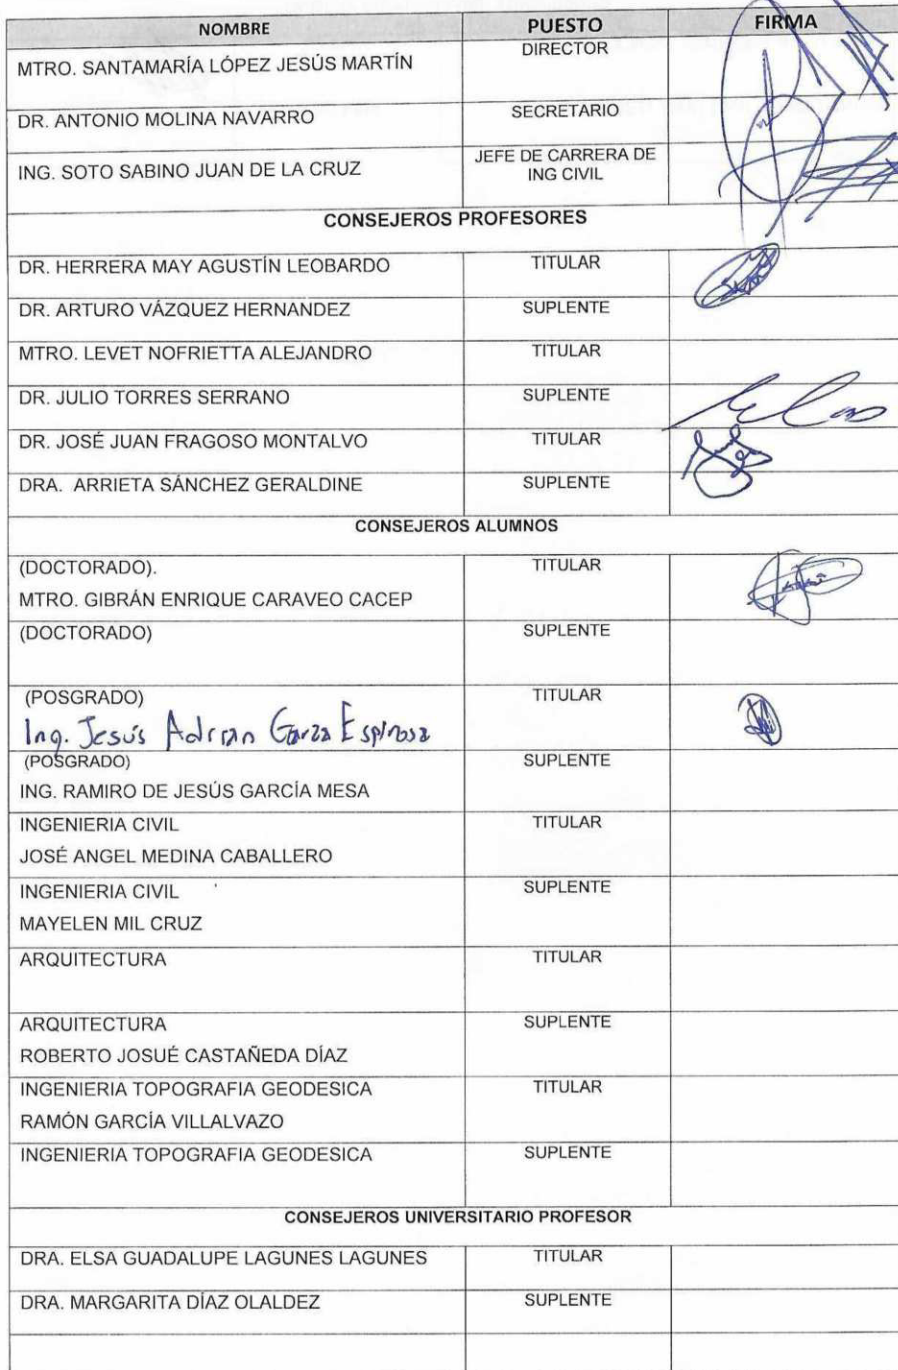 NOMBRE PUESTO FIRMA
MTRO. SANTAMARÍA LÓPEZ JESÚS MARTÍN DIRECTOR
DR. ANTONIO MOLINA NAVARRO SECRETARIO
ING. SOTO SABINO JUAN DE LA CRUZ JEFE DE CARRERA DE
ING CIVIL
CONSEJEROS PROFESORES
DR. HERRERA MAY AGUSTÍN LEOBARDO TITULAR
DR. ARTURO VÁZQUEZ HERNANDEZ SUPLENTE
MTRO. LEVET NOFRIETTA ALEJANDRO TITULAR
DR. JULIO TORRES SERRANO SUPLENTE
DR. JOSÉ JUAN FRAGOSO MONTALVO TITULAR
DRA. ARRIETA SÁNCHEZ GERALDINE SUPLENTE
CONSEJEROS ALUMNOS
(DOCTORADO). TITULAR
MTRO. GIBRÁN ENRIQUE CARAVEO CACEP
(DOCTORADO) SUPLENTE
(POSGRADO) TITULAR
Ing. Jesús Adrian Garza Espinosa
(POSGRADO) SUPLENTE
ING. RAMIRO DE JESÚS GARCÍA MESA
INGENIERIA CIVIL TITULAR
JOSÉ ANGEL MEDINA CABALLERO
INGENIERIA CIVIL SUPLENTE
MAYELEN MIL CRUZ
ARQUITECTURA TITULAR
ARQUITECTURA SUPLENTE
ROBERTO JOSUÉ CASTAÑEDA DÍAZ
INGENIERIA TOPOGRAFIA GEODESICA TITULAR
RAMÓN GARCÍA VILLALVAZO
INGENIERIA TOPOGRAFIA GEODESICA SUPLENTE
CONSEJEROS UNIVERSITARIO PROFESOR
DRA. ELSA GUADALUPE LAGUNES LAGUNES TITULAR
DRA. MARGARITA DÍAZ OLALDEZ SUPLENTE